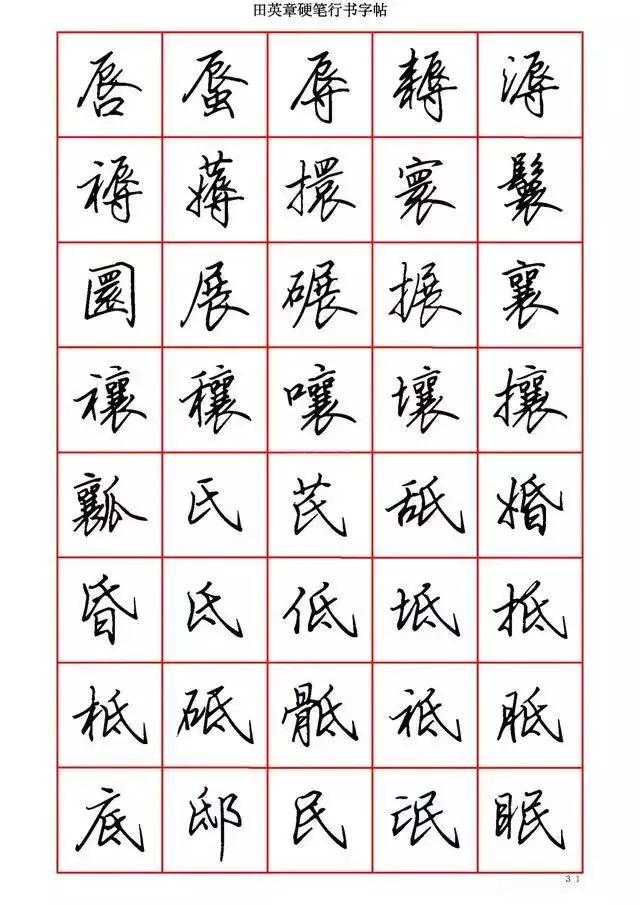 田英章硬笔行书字帖
唇蜃辱耨溽
褥薅擐寰鬟
圜展碾搌襄
禳穰嚷壤攘
瓤氏芪舐婚
昏氐低坻抵
柢砥骶祗胝
底邸民氓眠
31